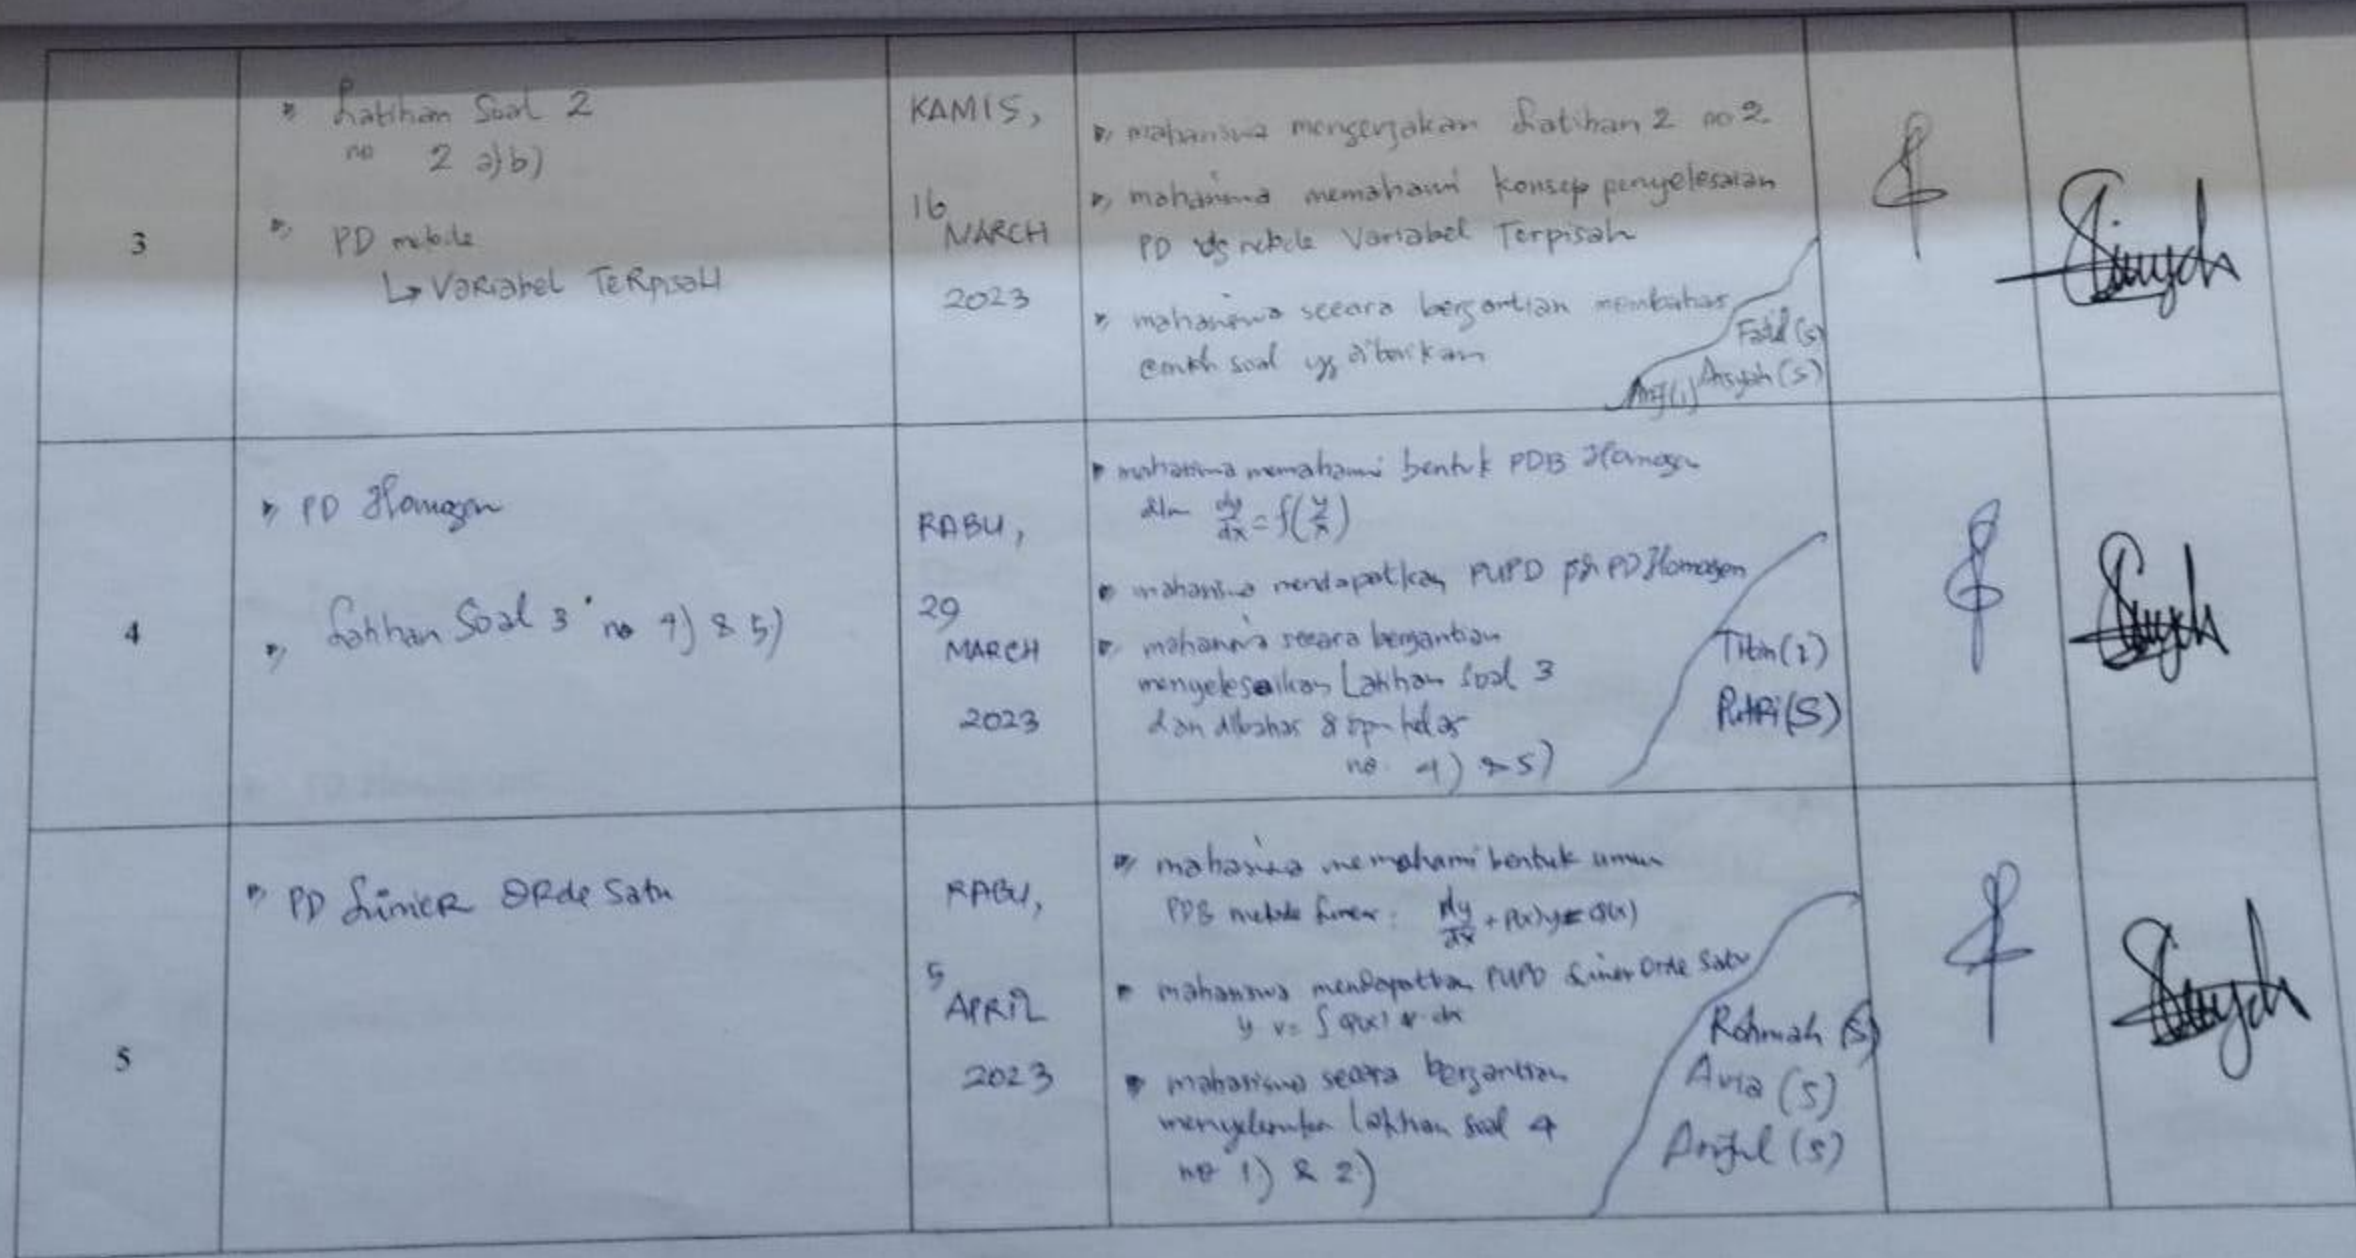 3
Latihan Soal 2
no 2 a) b)
PD metode
↳ VARIABEL TERPISAH
KAMIS,
16
MARCH
2023
mahasiswa mengerjakan Latihan 2 no 2
mahasiswa memahami konsep penyelesaian
PD dg metode Variabel Terpisah
mahasiswa secara bergantian membahas
contoh soal yg diberikan
Fatid (S)
Aisyah (S)
4
PD Homogen
Latihan Soal 3 no 4) & 5)
RABU,
29
MARCH
2023
mahasiswa memahami bentuk PDB Homogen
dlm dy/dx = f(y/x)
mahasiswa mendapatkan PUPD PD Homogen
mahasiswa secara bergantian
menyelesaikan Latihan Soal 3
dan dibahas kelas
no 4) & 5)
Titin (i)
Putri (S)
5
PD Linier ORde Satu
RABU,
5
APRIL
2023
mahasiswa memahami bentuk umum
PDB metode Linier: dy/dx + P(x)y = Q(x)
mahasiswa mendapatkan PUPD Linier Orde Satu
y v = ∫ Q(x) v dx
mahasiswa secara bergantian
Latihan Soal 4
no 1) & 2)
Rohmah (S)
Avia (S)
(S)